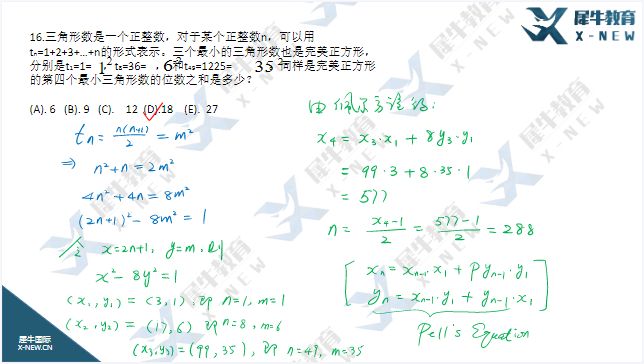 犀牛教育
X-NEW
16.三角形数是一个正整数，对于某个正整数n，可以用
tₙ=1+2+3+…+n的形式表示。三个最小的三角形数也是完美正方形，
分别是t₁=1= 1² t₈=36= 6² 和t₄₉=1225= 35² 同样是完美正方形
的第四个最小三角形数的位数之和是多少？
(A). 6 (B). 9 (C). 12 (D).18 (E). 27
tₙ = n(n+1)/2 = m²
⇒ n²+n = 2m²
4n²+4n = 8m²
(2n+1)² - 8m² = 1
x=2n+1, y=m, 则
x² - 8y² = 1
(x₁, y₁) = (3, 1), 即 n=1, m=1
(x₂, y₂) = (17, 6) 即 n=8, m=6
(x₃, y₃) = (99, 35), 即 n=49, m=35
由佩尔方程得:
x₄ = x₃·x₁ + 8y₃·y₁
= 99·3 + 8·35·1
= 577
n = (x₄-1)/2 = (577-1)/2 = 288
xₙ = xₙ₋₁·x₁ + Pyₙ₋₁·y₁
yₙ = xₙ₋₁·y₁ + yₙ₋₁·x₁
Pell's Equation
犀牛国际
X-NEW.CN